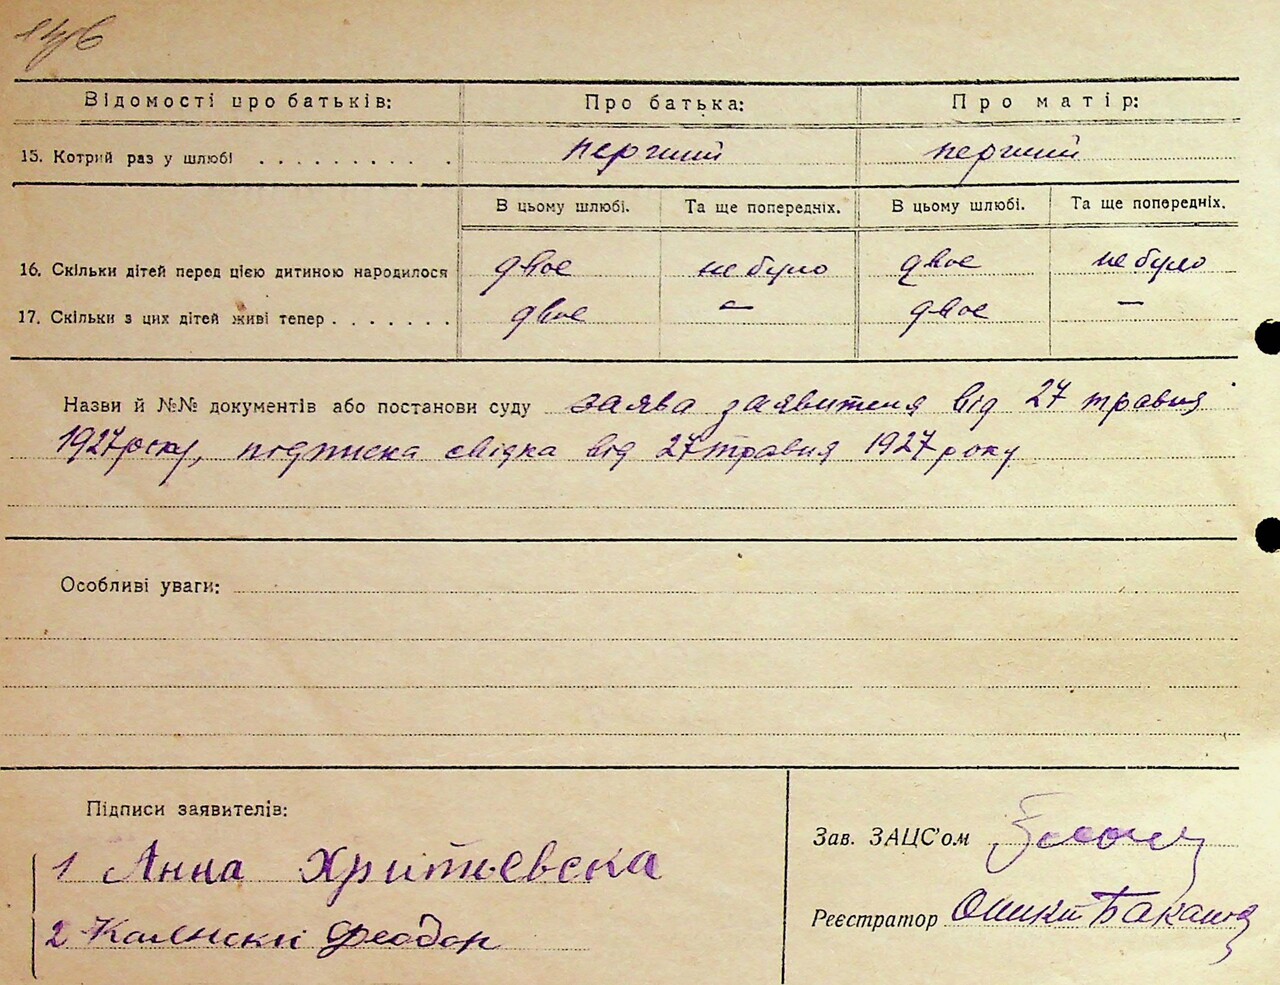 146
Відомості про батьків: Про батька: Про матір:
15. Котрий раз у шлюбі . . . . . . . . . . перший перший
В цьому шлюбі. Та ще попередніх. В цьому шлюбі. Та ще попередніх.
16. Скільки дітей перед цією дитиною народилося двоє не було двоє не було
17. Скільки з цих дітей живі тепер . . . . . . . двоє — двоє —
Назви й №№ документів або постанови суду заява заявителя від 27 травня
1927 року, подписка свідка від 27 травня 1927 року
Особливі уваги:
Підписи заявителів:
Зав. ЗАЦС'ом
1 Анна
2 Феодор
Реєстратор